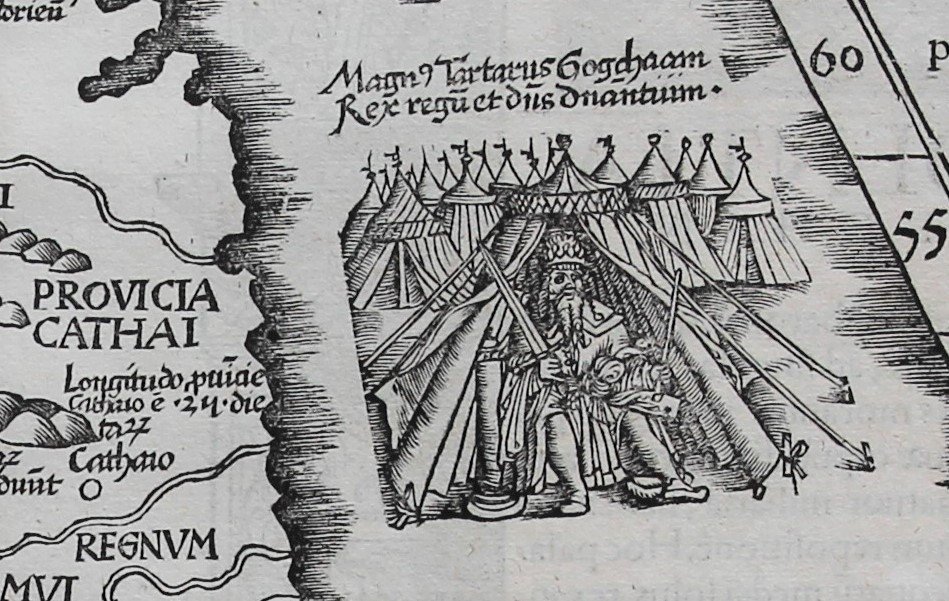 orieū
Magnꝰ Tartarus Gogchaam
Rex regū et dn̄s dn̄antium.
60
P
I
55
PROVICIA
CATHAI
Longitudo ꝓuīcie
Cathaio ē .24. die
taꝝ
Cathaio
dunt O
REGNVM
MVI